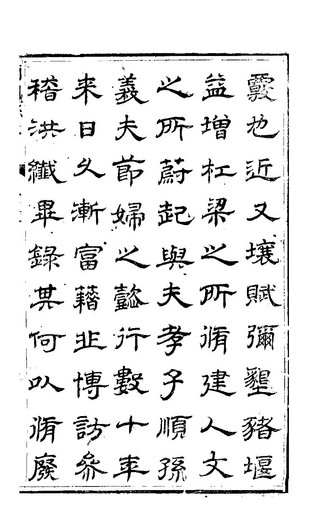 覈也近又壤賦彌墾豬堰
益增杠梁之所脩建人文
之所蔚起與夫孝子順孫
義夫節婦之懿行數十年
来日久漸富藉非博訪叅
稽洪纖畢録其何以脩廢